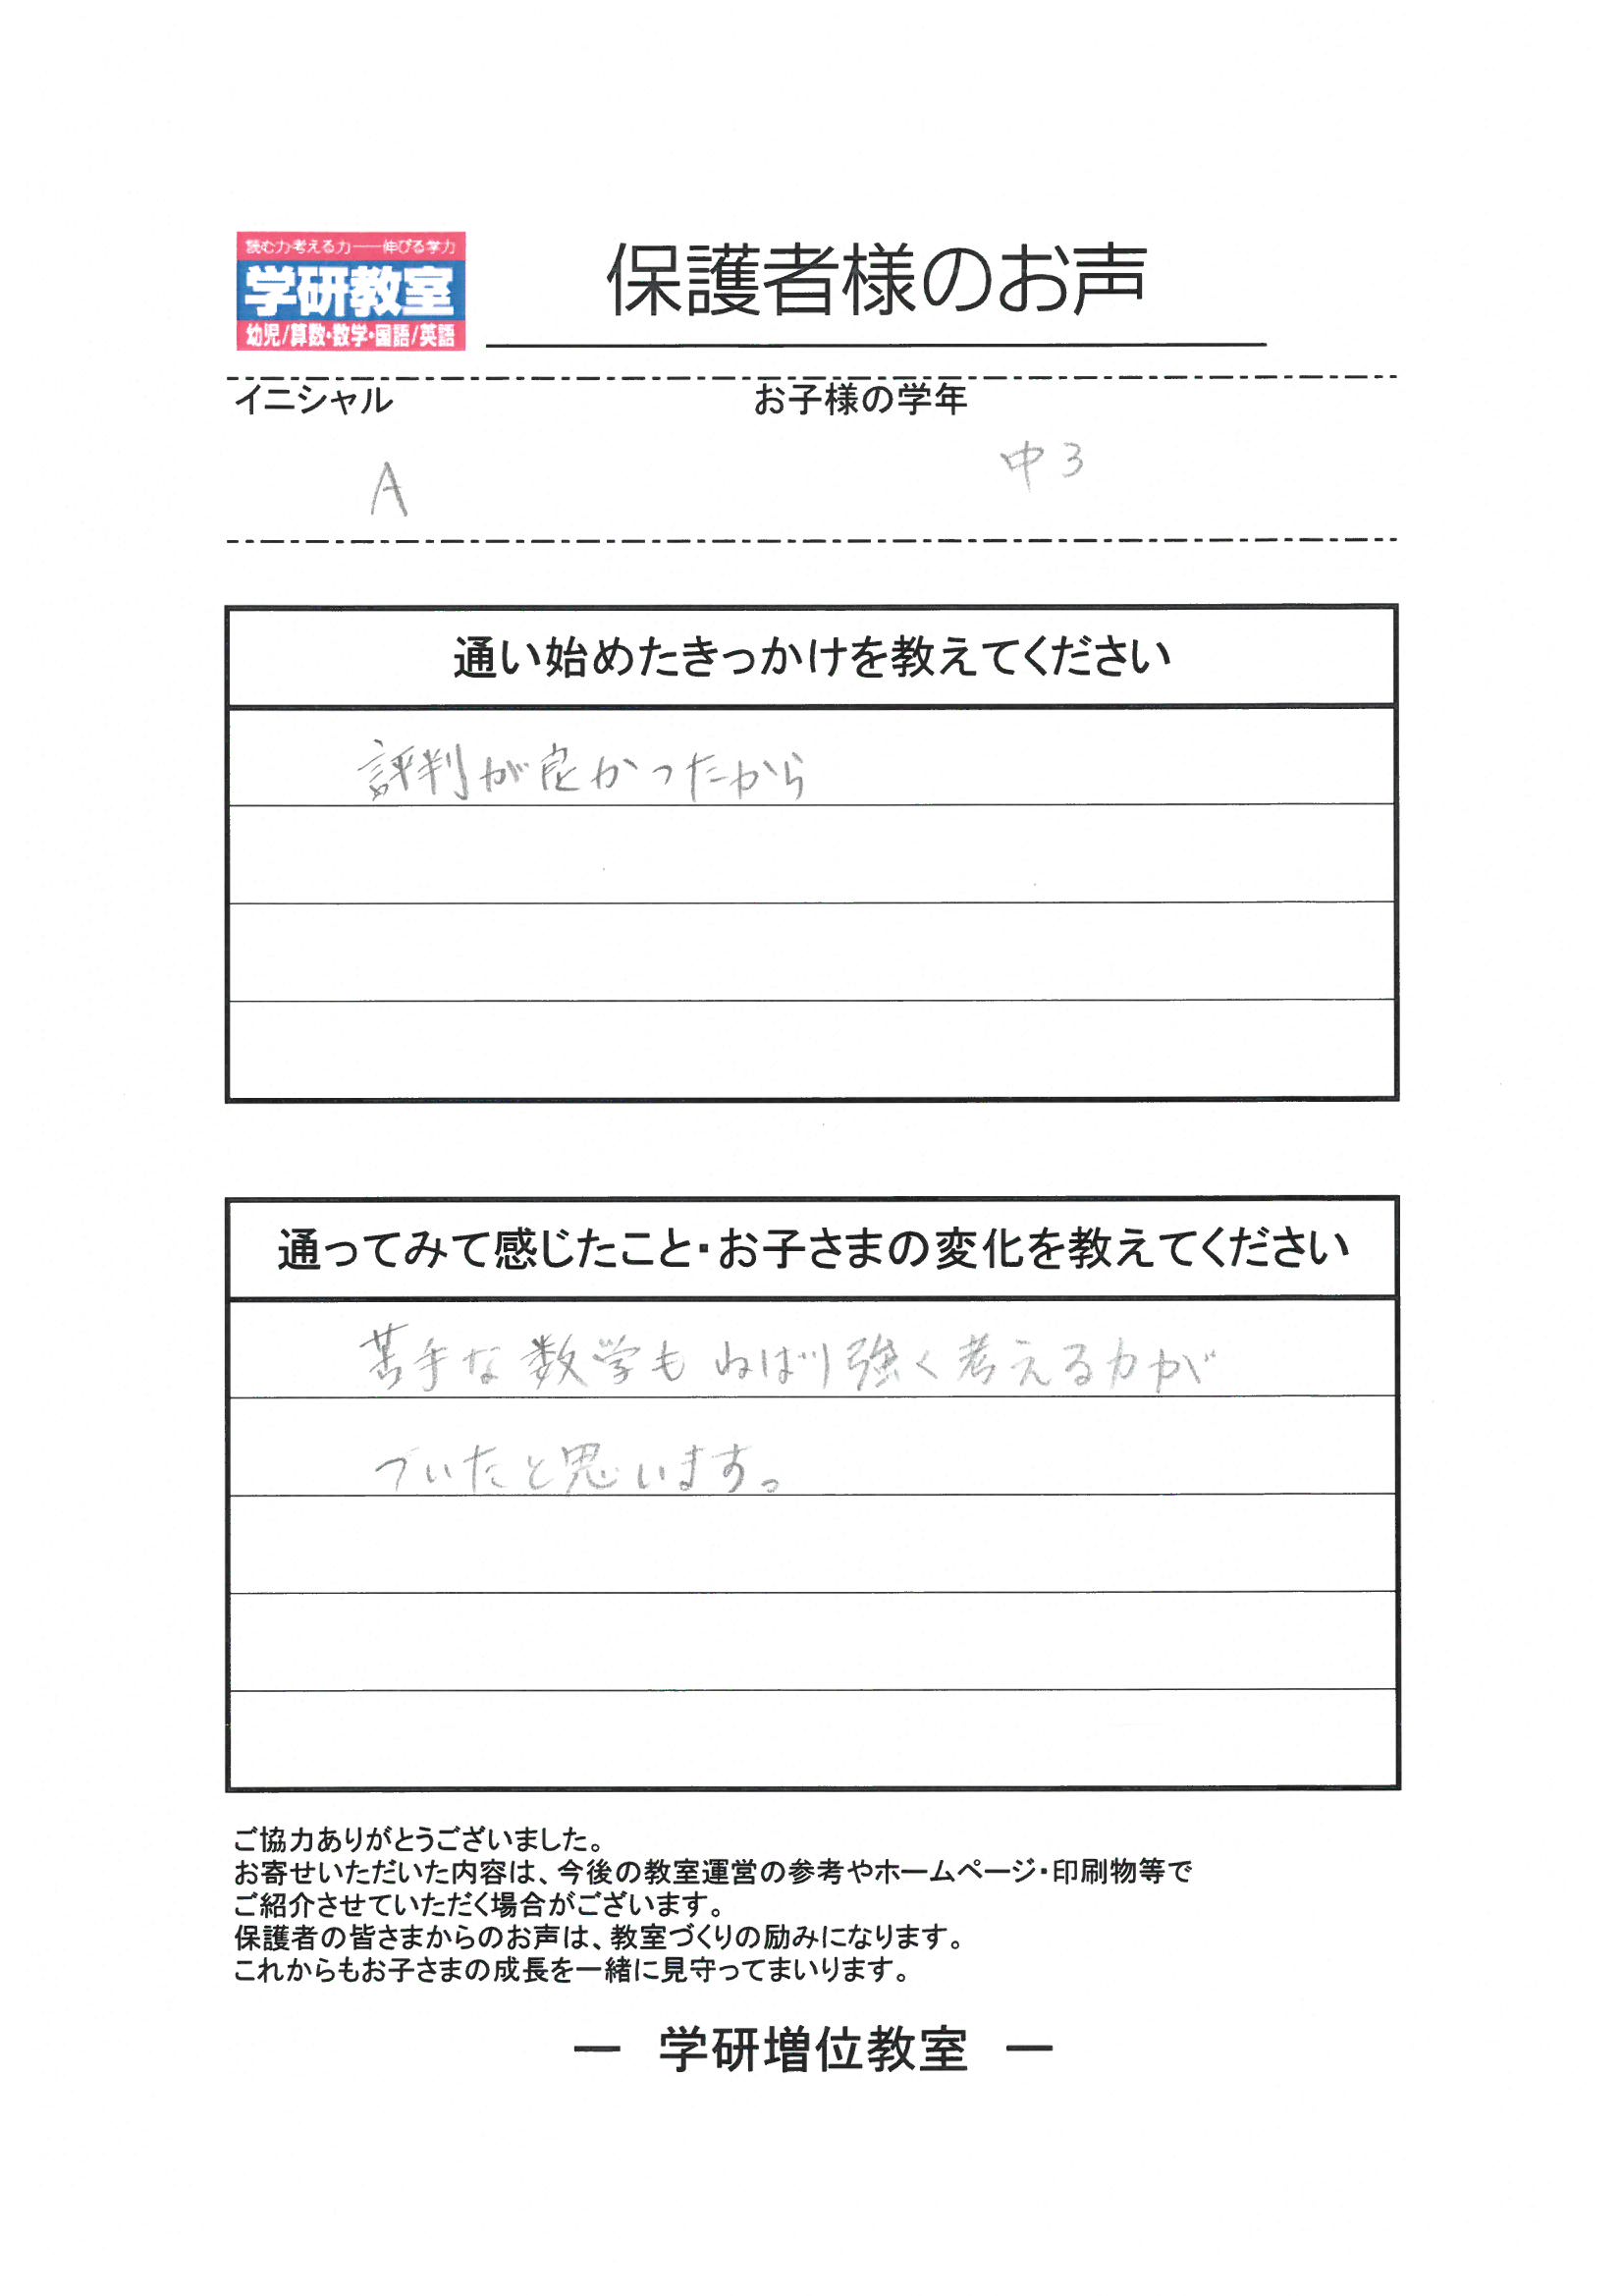 読む力考える力――伸びる学力
学研教室
幼児/算数・数学・国語/英語
保護者様のお声
イニシャル
お子様の学年
A
中3
通い始めたきっかけを教えてください
評判が良かったから
通ってみて感じたこと・お子さまの変化を教えてください
苦手な数学もねばり強く考える力が
ついたと思います。
ご協力ありがとうございました。
お寄せいただいた内容は、今後の教室運営の参考やホームページ・印刷物等で
ご紹介させていただく場合がございます。
保護者の皆さまからのお声は、教室づくりの励みになります。
これからもお子さまの成長を一緒に見守ってまいります。
― 学研増位教室 ―